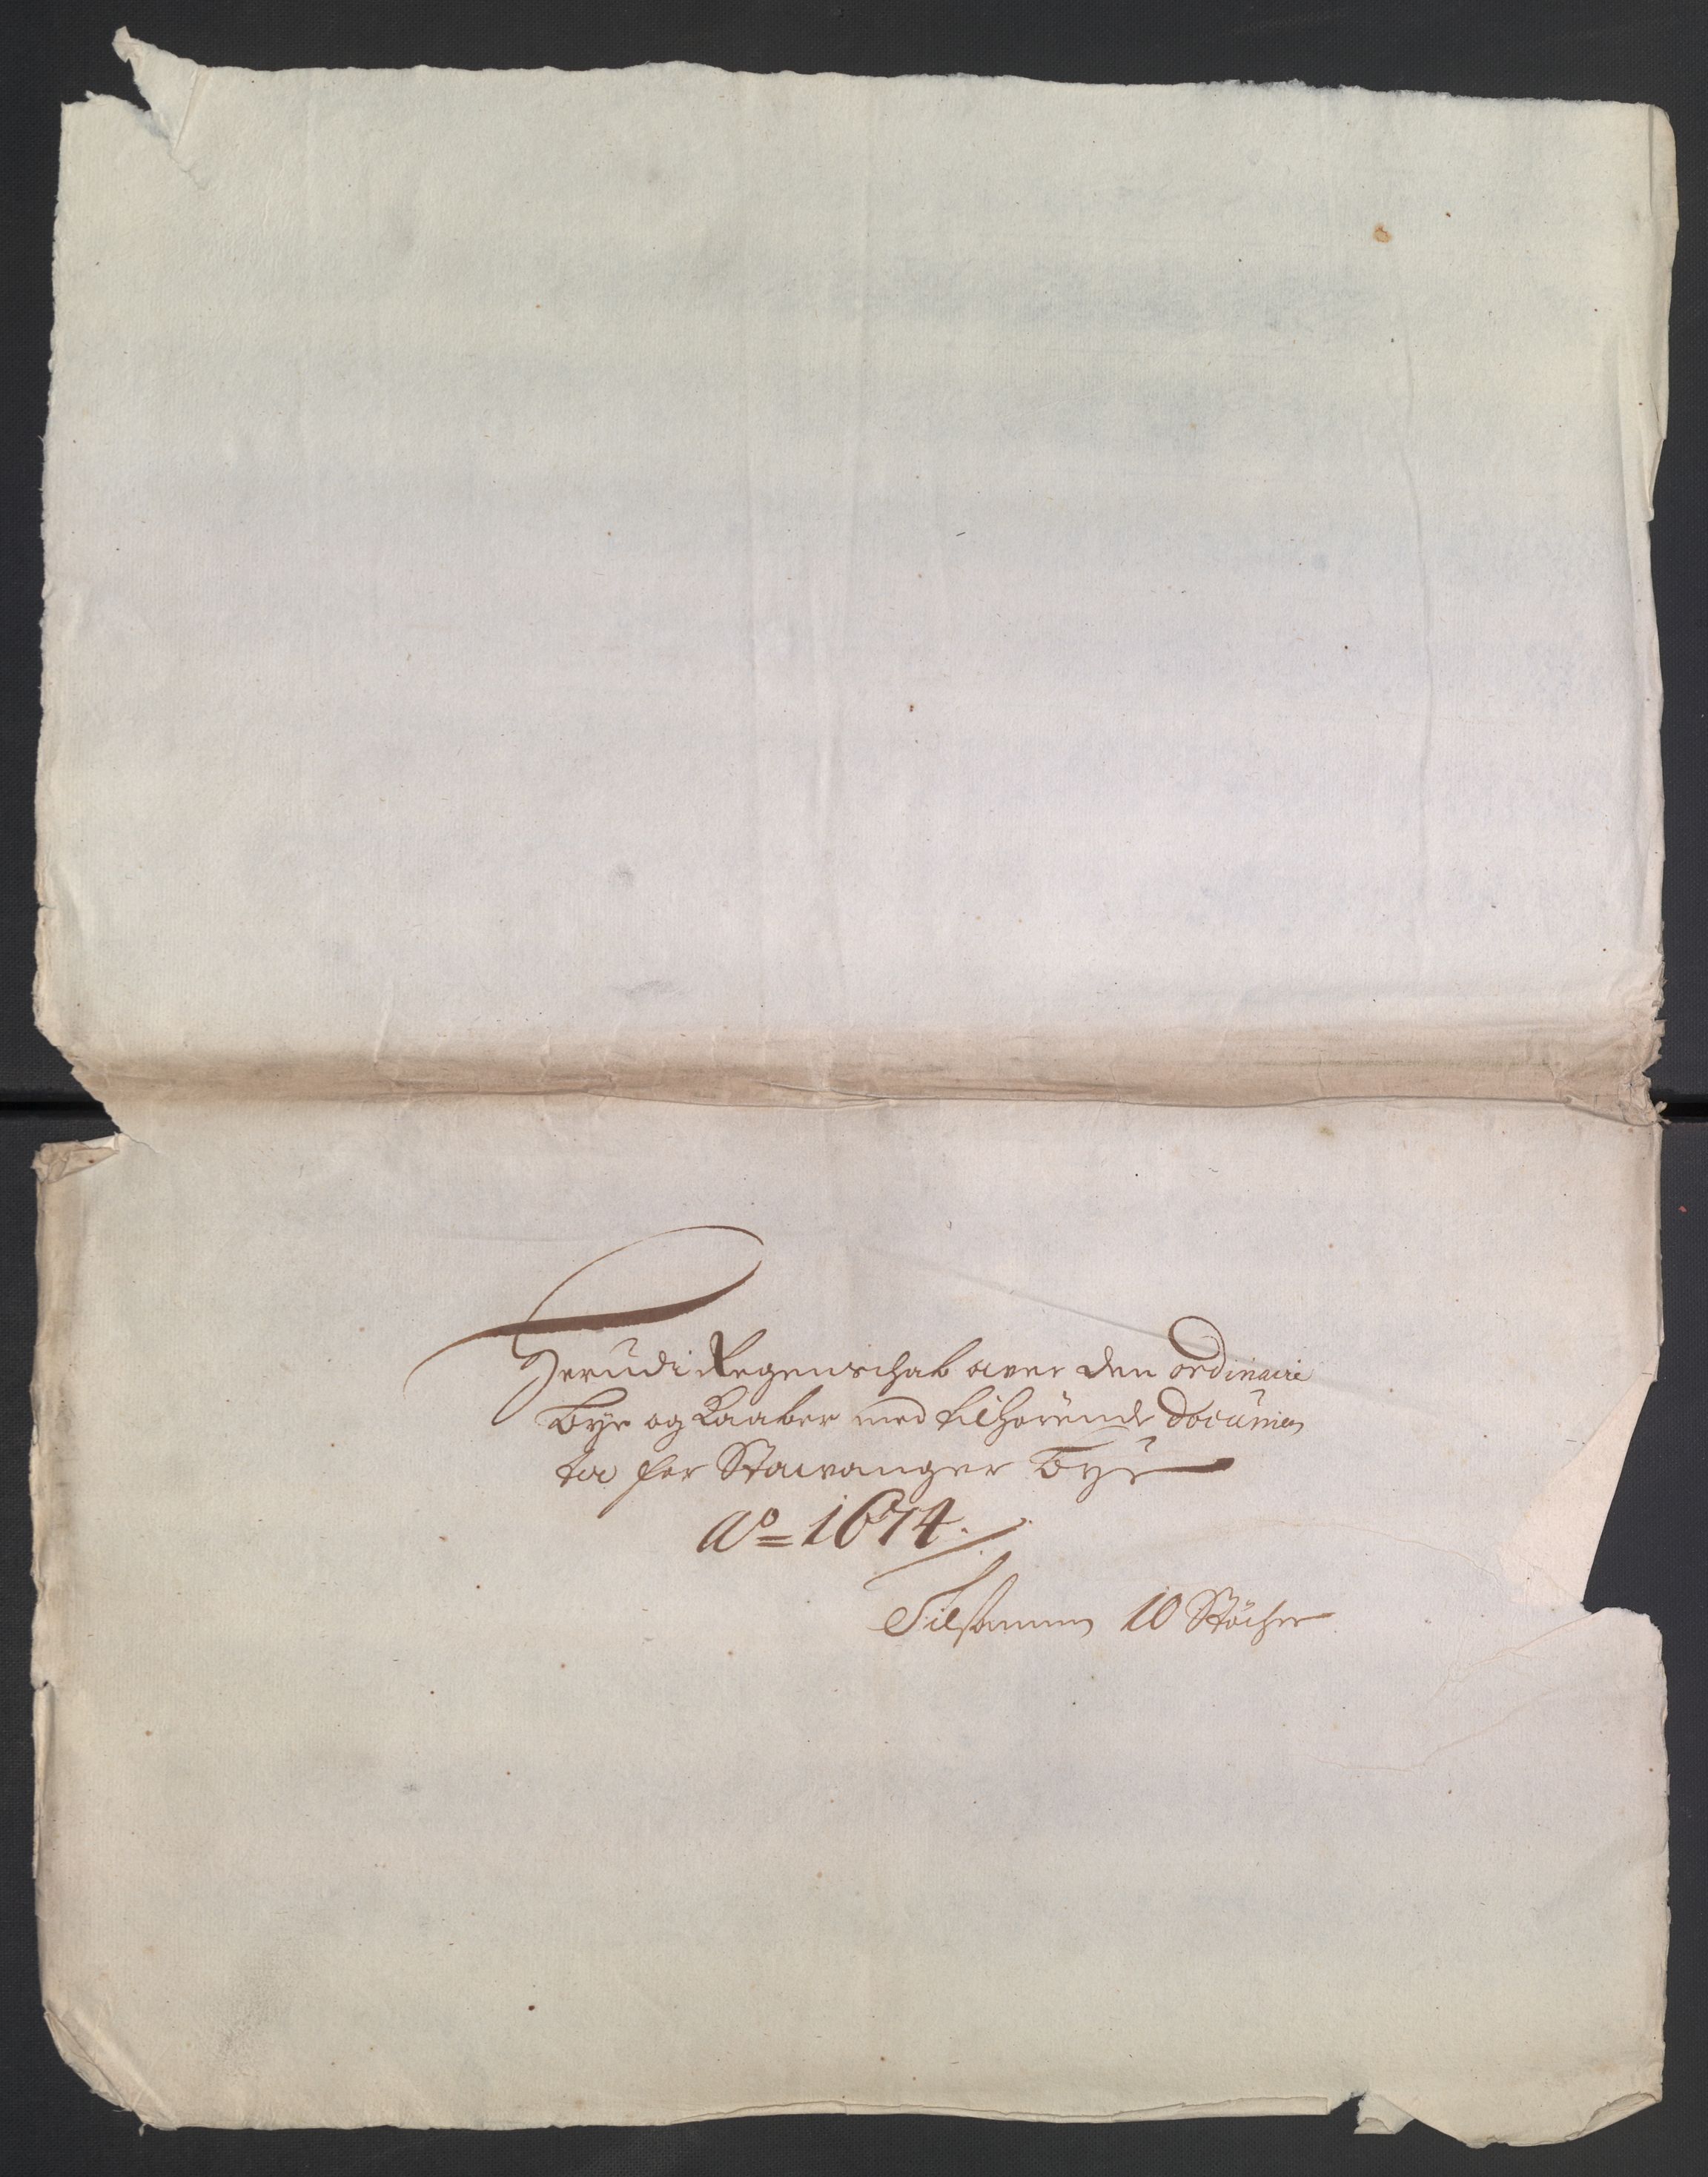 Herudi Regenschab over den ordinairi
Bye og Raaber med tilhörende documen
ta for Stawanger Bye
Ao= 1674.
Tilsamen 10 Stöcher